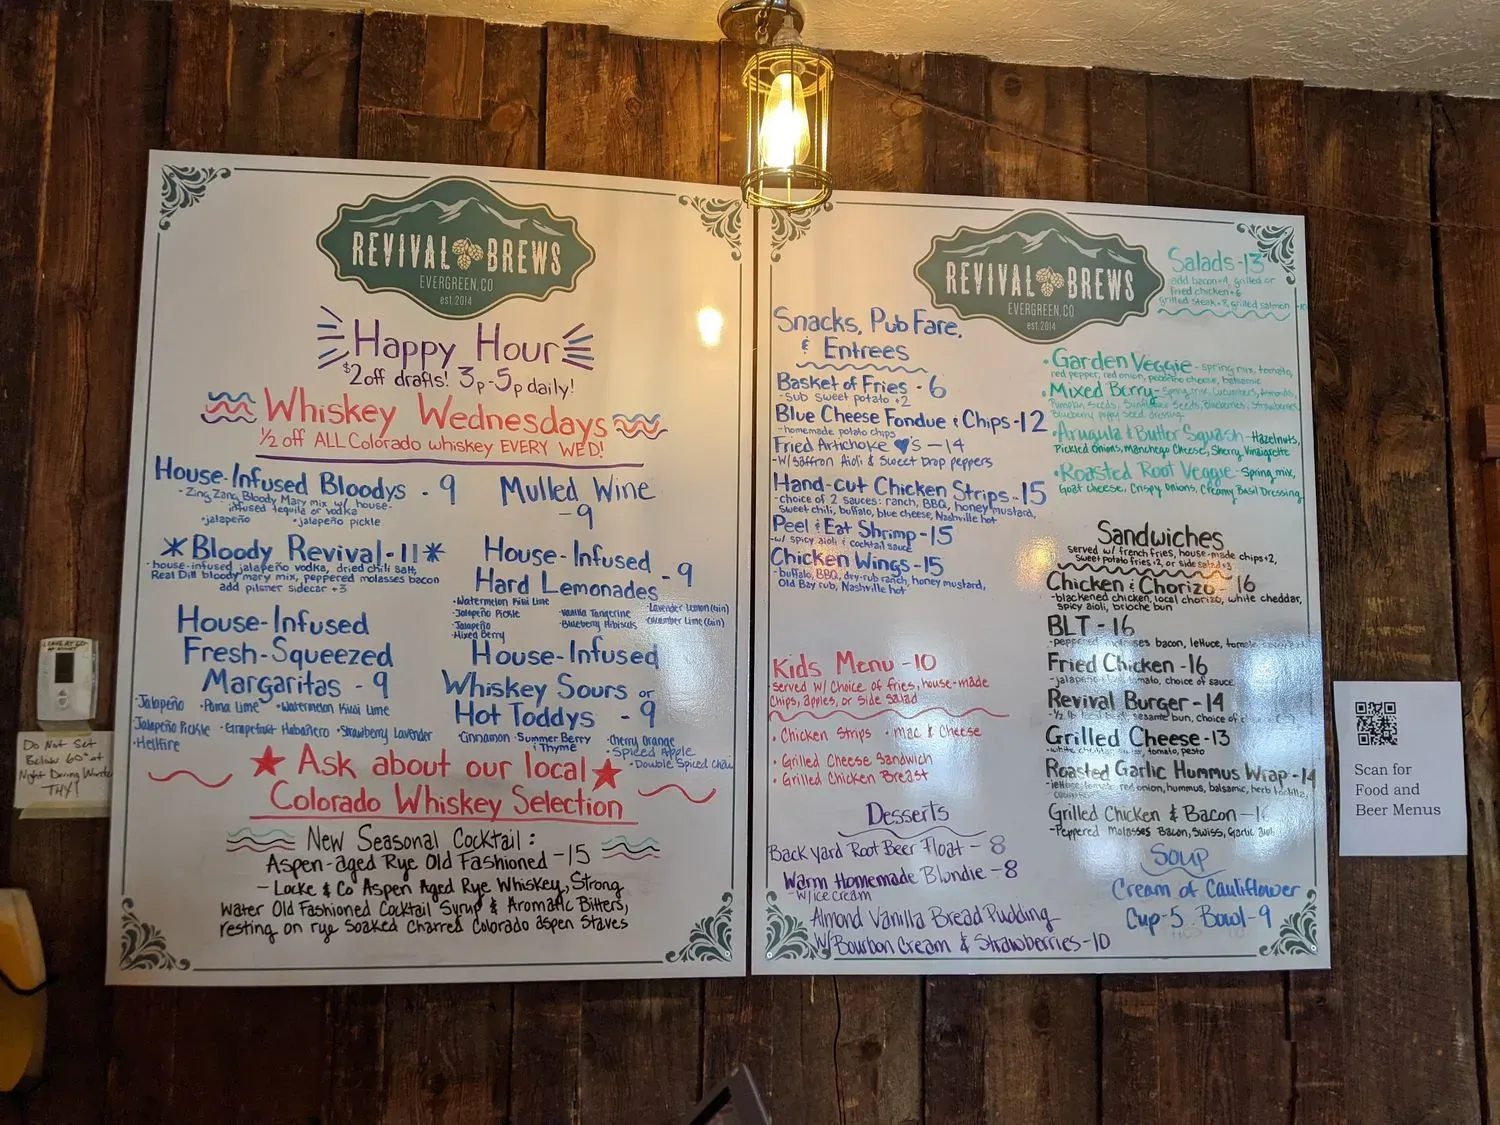 REVIVAL BREWS
EVERGREEN, CO
est. 2014
Happy Hour
$2 off drafts! 3p-5p daily!
Whiskey Wednesdays
1/2 off ALL Colorado whiskey EVERY WED!
House-Infused Bloodys - 9
- Zing Zang Bloody Mary mix w/ house-
infused tequila or vodka
•jalapeño •jalapeño pickle
Mulled Wine
- 9
*Bloody Revival - 11*
- house-infused jalapeño vodka, dried chili salt,
Real Dill bloody mary mix, peppered molasses bacon
add pilsner sidecar +3
House-Infused
Hard Lemonades - 9
•Watermelon Kiwi Lime
•Jalapeño Pickle
•Jalapeño
•Mixed Berry
•Vanilla Tangerine
•Blueberry Hibiscus
•Lavender Lemon (Gin)
•Cucumber Lime (Gin)
House-Infused
Fresh-Squeezed
Margaritas - 9
•Jalapeño •Poma Lime •Watermelon Kiwi Lime
Jalapeño Pickle •Grapefruit Habañero •Strawberry Lavender
•Hellfire
House-Infused
Whiskey Sours or
Hot Toddys - 9
•Cinnamon •Summer Berry
Thyme
•Cherry Orange
•Spiced Apple
•Double Spiced Chai
★ Ask about our local ★
Colorado Whiskey Selection
New Seasonal Cocktail:
Aspen-aged Rye Old Fashioned - 15
- Locke & Co Aspen Aged Rye Whiskey, Strong
Water Old Fashioned Cocktail Syrup & Aromatic Bitters,
resting on rye soaked Charred Colorado aspen Staves
REVIVAL BREWS
EVERGREEN, CO
est. 2014
Snacks, Pub Fare,
& Entrees
Basket of Fries - 6
- sub sweet potato +2
Blue Cheese Fondue & Chips - 12
- homemade potato chips
Fried Artichoke ♥'s - 14
- w/ Saffron Aioli & Sweet Drop peppers
Hand-cut Chicken Strips - 15
- choice of 2 sauces: ranch, BBQ, honey mustard,
sweet chili, buffalo, blue cheese, Nashville hot
Peel & Eat Shrimp - 15
- w/ spicy aioli & cocktail sauce
Chicken Wings - 15
- buffalo, BBQ, dry-rub ranch, honey mustard,
Old Bay rub, Nashville hot
Kids Menu - 10
- served w/ choice of fries, house-made
chips, apples, or side salad
• Chicken Strips • Mac & Cheese
• Grilled Cheese Sandwich
• Grilled Chicken Breast
Desserts
Backyard Root Beer Float - 8
Warm Homemade Blondie - 8
- w/ ice cream
Almond Vanilla Bread Pudding
w/ Bourbon Cream & Strawberries - 10
Salads - 13
add bacon +4, grilled or
fried chicken + 6
grilled steak + 8, grilled salmon
• Garden Veggie - spring mix, tomato,
red pepper, red onion, pecorino cheese, balsamic
• Mixed Berry - Spring mix, Cucumbers, Almonds,
Pumpkin Seeds, Sunflower Seeds, Blueberries, Strawberries,
Blueberry poppy seed dressing
• Arugula & Butter Squash - Hazelnuts,
Pickled Onions, Manchego Cheese, Sherry Vinaigrette
• Roasted Root Veggie - Spring mix,
Goat cheese, Crispy Onions, Creamy Basil Dressing
Sandwiches
served w/ french fries, house-made chips +2,
sweet potato fries +2, or side salad +3
Chicken & Chorizo - 16
- blackened chicken, local chorizo, white cheddar,
spicy aioli, brioche bun
BLT - 16
- peppered molasses bacon, lettuce,
Fried Chicken - 16
- jalapeño tomato, choice of sauce
Revival Burger - 14
- 1/2 lb sesame bun, choice of
Grilled Cheese - 13
- white tomato, pesto
Roasted Garlic Hummus Wrap - 14
- lettuce, tomato, red onion, hummus, balsamic, herb tortilla,
Grilled Chicken & Bacon
- Peppered Molasses Bacon, Swiss, Garlic aioli
Soup
Cream of Cauliflower
Cup - 5 Bowl - 9
Do Not Set
Below 60° at
Night During Winter
THX!
Scan for
Food and
Beer Menus